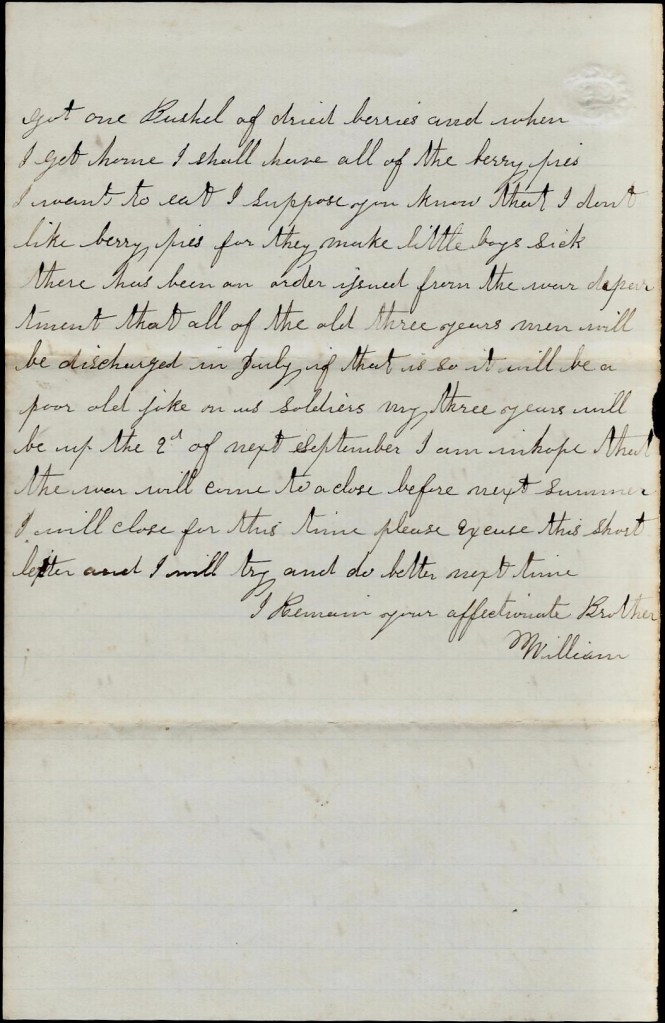 got one Bushel of dried berries and when
I get home I shall have all of the berry pies
I want to eat I suppose you know that I dont
like berry pies for they make little boys sick
there has been an order issued from the war depar
tment that all of the old three years men will
be discharged in July if that is so it will be a
poor old joke on us soldiers my three years will
be up the 2d of next September I am in hope that
the war will come to a close before next summer
I will close for this time please Excuse this short
letter and I will try and do better next time
I Remain your affectionate Brother
William